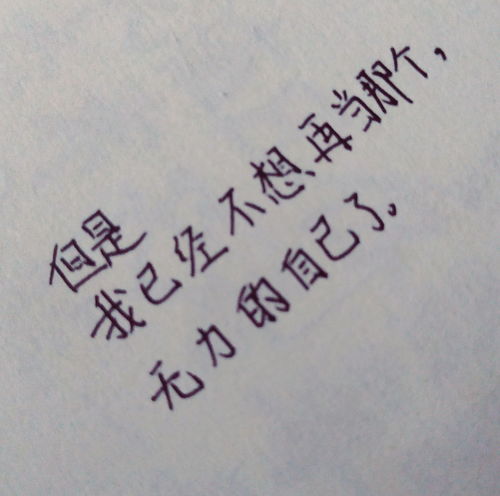 但是
我已经不想再当那个，
无力的自己了。